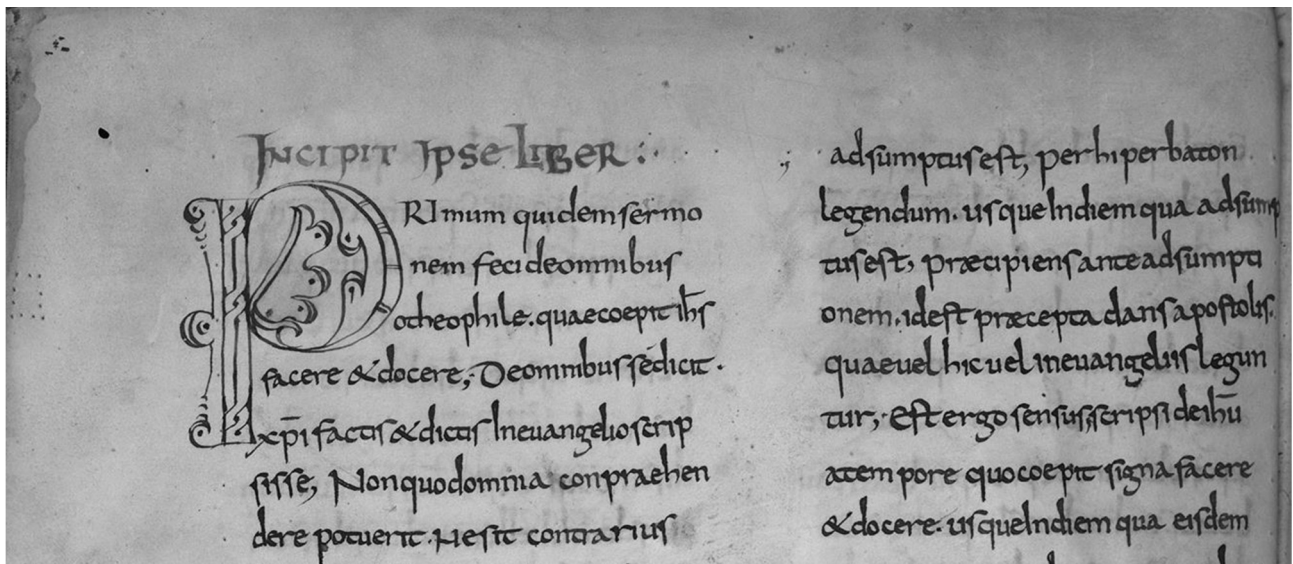 INCIPIT IPSE LIBER :·
PRImum quidem sermo
nem feci de omnibus
o theophile. quae coepit ihs̄
facere & docere; De omnibus se dicit ·
xp̄i factis & dictis In euangelio scrip
sisse; Non quod omnia conpraehen
dere potuerit. Ne sit contrarius
adsumptus est; per hiperbaton
legendum. usque In diem qua adsump
tus est; præcipiens ante adsumpti
onem. id est præcepta dans apostolis.
quae uel hic uel in euangeliis legun
tur; Est ergo sensus scripsi de ihū
a tempore quo coepit signa facere
& docere. usque In diem qua eisdem